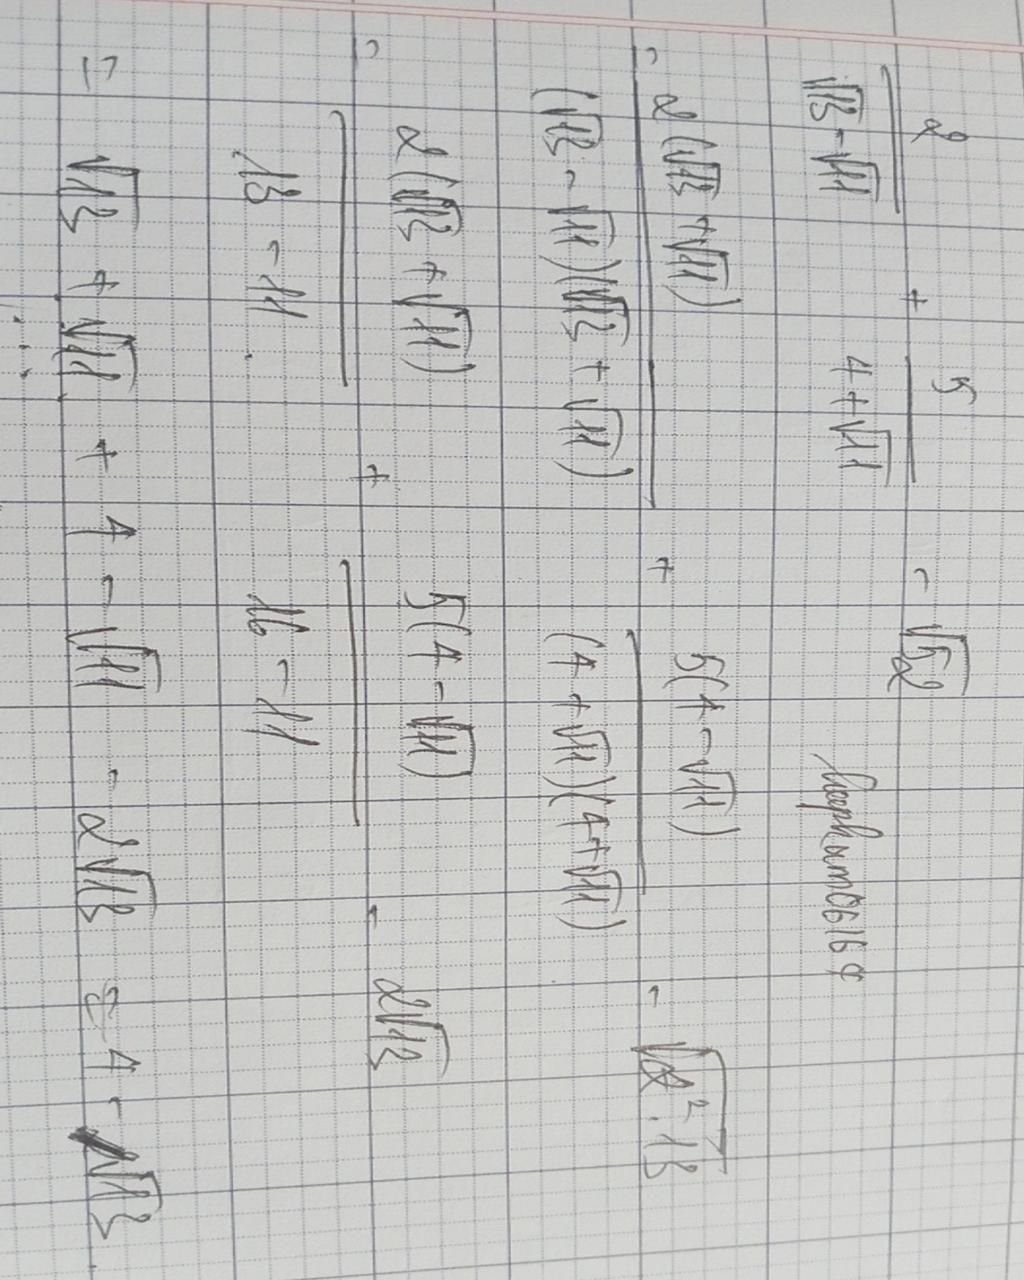 2/(√13 - √11) + 5/(4+√11) - √52
= 2(√13 + √11)/((√13 - √11)(√13 + √11)) + 5(4 - √11)/((4 + √11)(4+√11)) - √(2²·13)
= 2(√13 + √11)/(13 - 11) + 5(4 - √11)/(16 - 11) - 2√13
= √13 + √11 + 4 - √11 - 2√13 = 4 - √13.